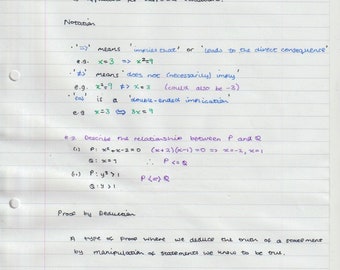 Notation
'=>' means 'implies that' or 'leads to the direct consequence'
e.g. x=3 => x²=9
'≠>' means 'does not (necessarily) imply'
e.g. x²=9 ≠> x=3 (could also be -3)
'<=>' is a 'double-ended implication'
e.g. x=3 <=> 3x=9
e.g. Describe the relationship between P and Q
(i) P: x²+x-2=0 (x+2)(x-1)=0 => x=-2, x=1
Q: x=1 ∴ P <= Q
(ii) P: y³>1 P <=> Q
Q: y>1
Proof by Deduction
A type of proof where we deduce the truth of a statement
by manipulation of statements we know to be true.